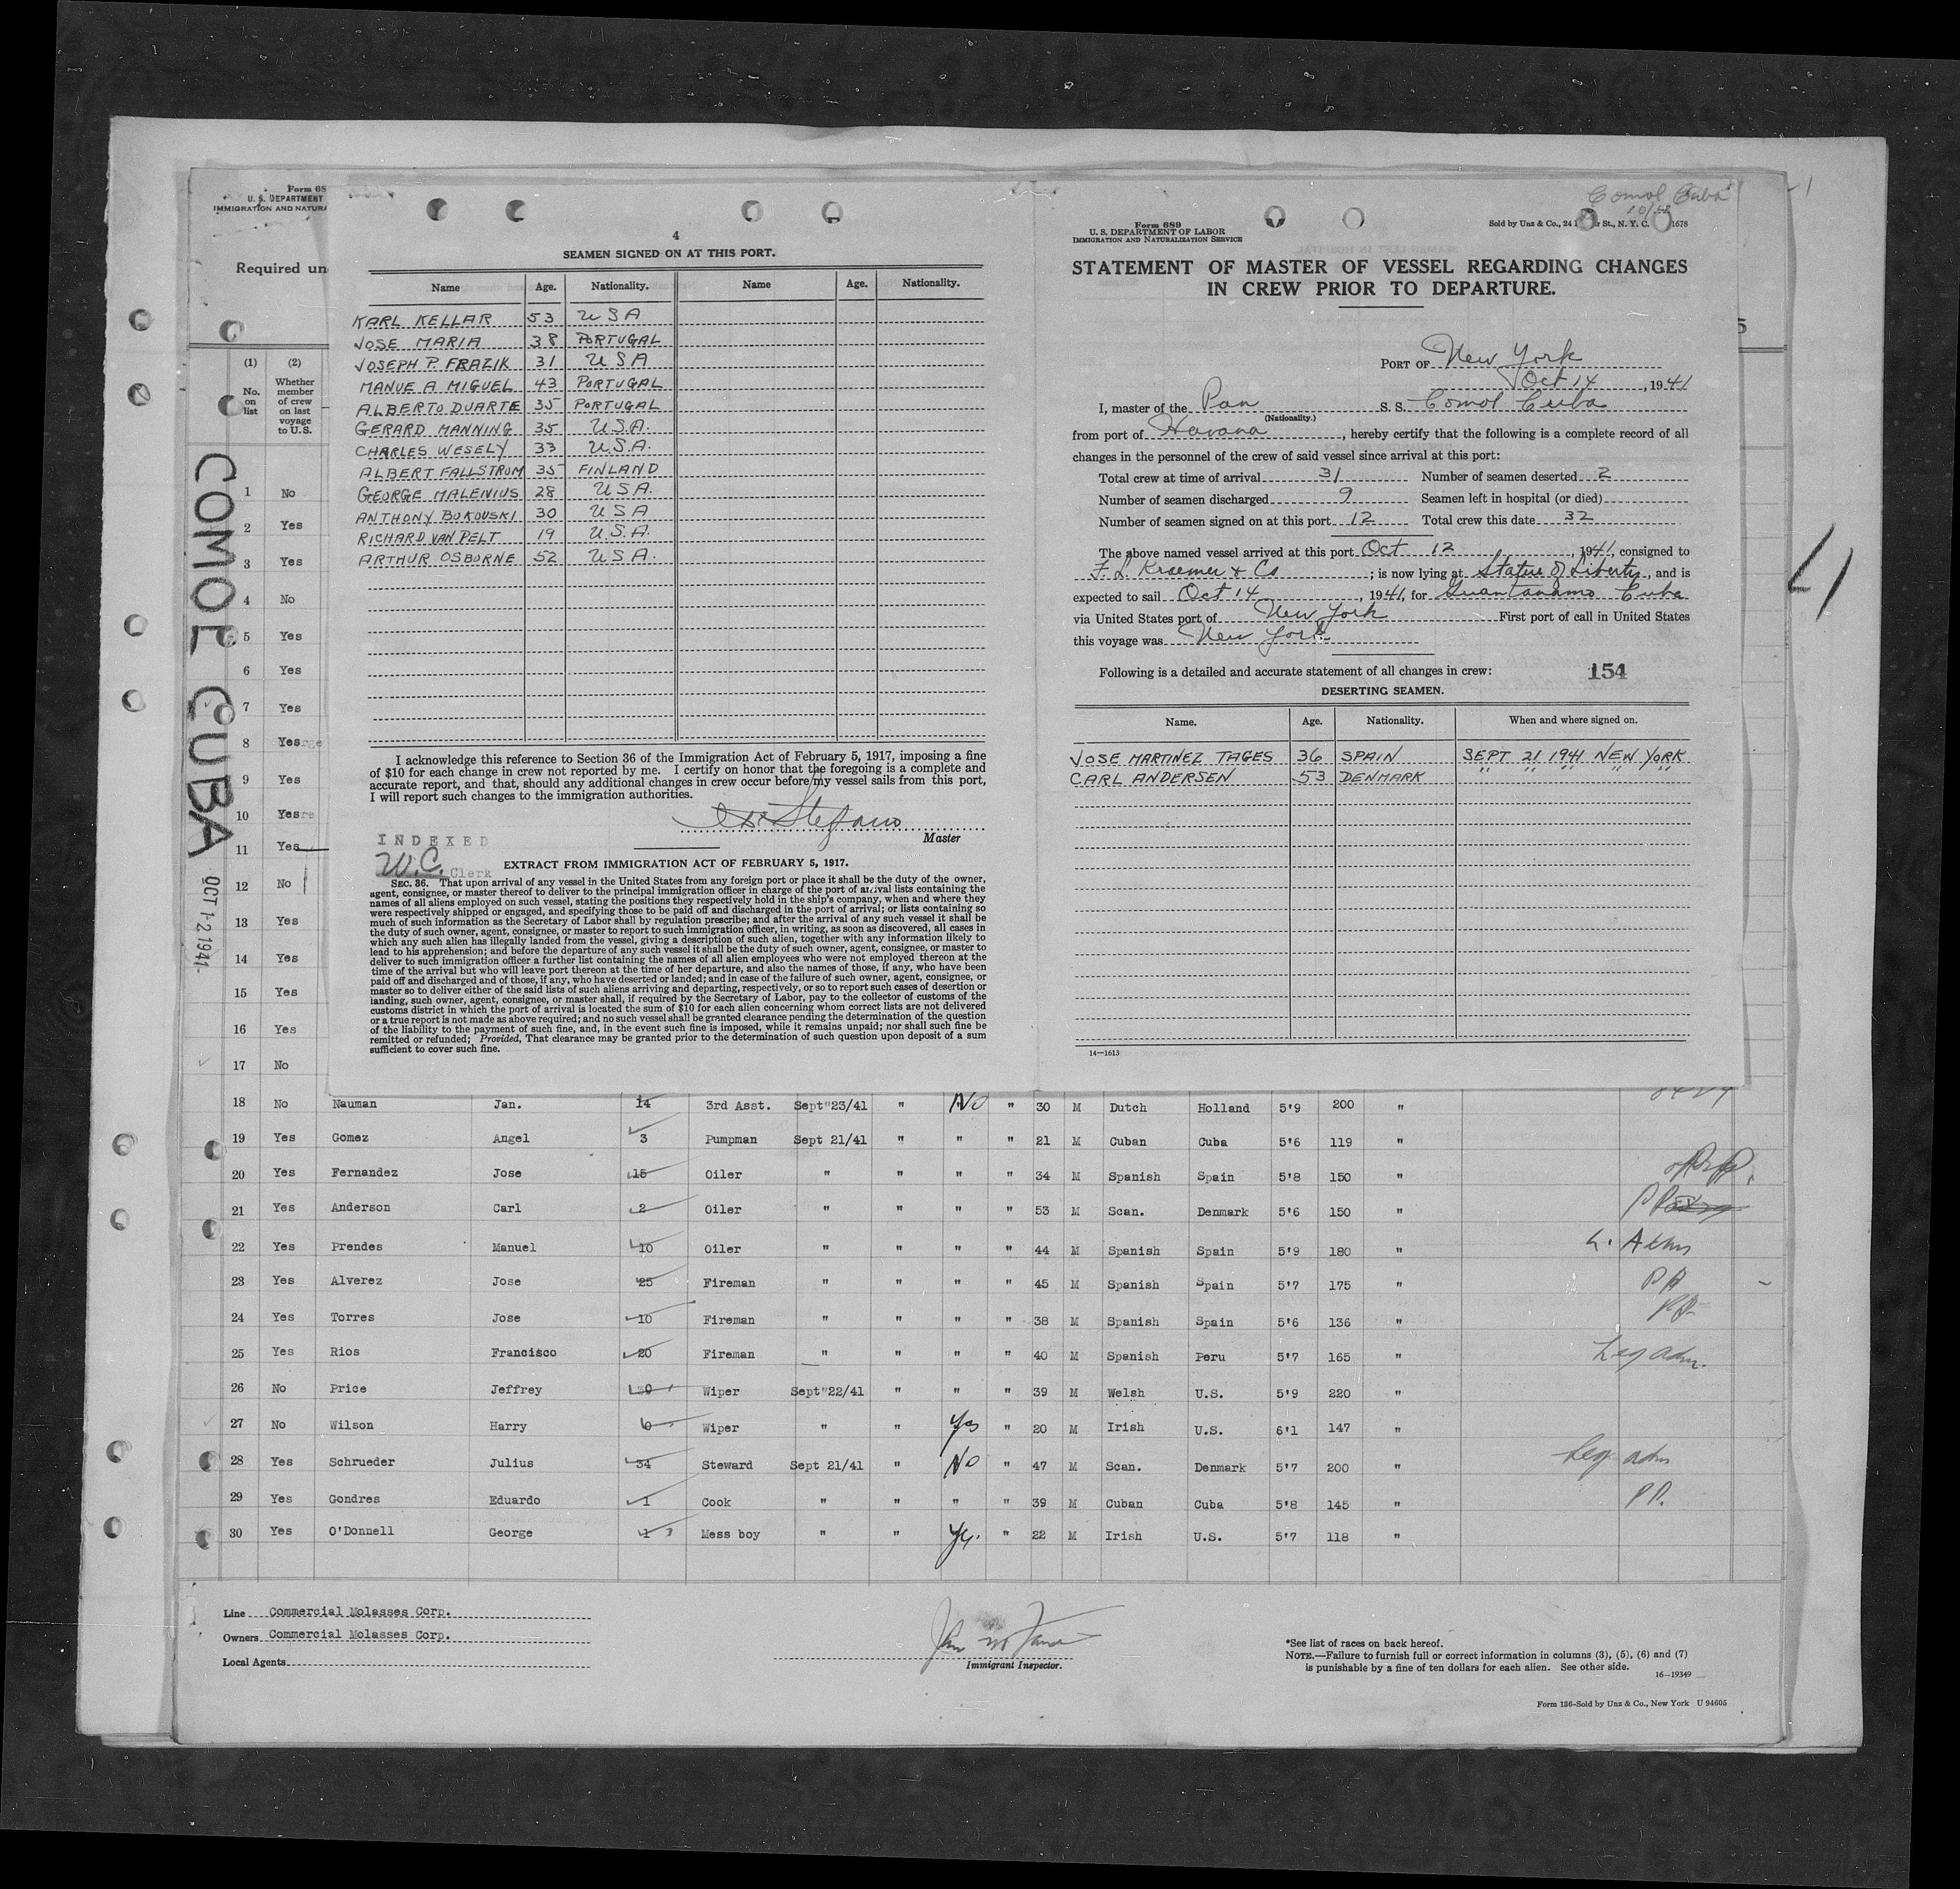 Form 68
U. S. DEPARTMENT
IMMIGRATION AND NATURA
Required un
(1) (2)
No. on list
Whether member of crew on last voyage to U.S.
1 No
2 Yes
3 Yes
4 No
5 Yes
6 Yes
7 Yes
8 Yes
9 Yes
10 Yes
11 Yes
12 No
13 Yes
14 Yes
15 Yes
16 Yes
17 No
COMOL CUBA
OCT 12 1941
4
SEAMEN SIGNED ON AT THIS PORT.
Name Age. Nationality. Name Age. Nationality.
KARL KELLAR 53 USA
JOSE MARIA 38 PORTUGAL
JOSEPH P. FRAZIK 31 USA
MANUE A. MIGUEL 43 PORTUGAL
ALBERTO DUARTE 35 PORTUGAL
GERARD MANNING 35 U.S.A.
CHARLES WESELY 33 U.S.A.
ALBERT FALLSTROM 35 FINLAND
GEORGE MALENIUS 28 USA.
ANTHONY BOKOUSKI 30 USA
RICHARD VAN PELT 19 U.S.A.
ARTHUR OSBORNE 52 USA.
I acknowledge this reference to Section 36 of the Immigration Act of February 5, 1917, imposing a fine
of $10 for each change in crew not reported by me. I certify on honor that the foregoing is a complete and
accurate report, and that, should any additional changes in crew occur before my vessel sails from this port,
I will report such changes to the immigration authorities.
Stefano
Master
INDEXED
W.C. Clerk
EXTRACT FROM IMMIGRATION ACT OF FEBRUARY 5, 1917.
SEC. 36. That upon arrival of any vessel in the United States from any foreign port or place it shall be the duty of the owner,
agent, consignee, or master thereof to deliver to the principal immigration officer in charge of the port of arrival lists containing the
names of all aliens employed on such vessel, stating the positions they respectively hold in the ship's company, when and where they
were respectively shipped or engaged, and specifying those to be paid off and discharged in the port of arrival; or lists containing so
much of such information as the Secretary of Labor shall by regulation prescribe; and after the arrival of any such vessel it shall be
the duty of such owner, agent, consignee, or master to report to such immigration officer, in writing, as soon as discovered, all cases in
which any such alien has illegally landed from the vessel, giving a description of such alien, together with any information likely to
lead to his apprehension; and before the departure of any such vessel it shall be the duty of such owner, agent, consignee, or master to
deliver to such immigration officer a further list containing the names of all alien employees who were not employed thereon at the
time of the arrival but who will leave port thereon at the time of her departure, and also the names of those, if any, who have been
paid off and discharged and of those, if any, who have deserted or landed; and in case of the failure of such owner, agent, consignee, or
master so to deliver either of the said lists of such aliens arriving and departing, respectively, or so to report such cases of desertion or
landing, such owner, agent, consignee, or master shall, if required by the Secretary of Labor, pay to the collector of customs of the
customs district in which the port of arrival is located the sum of $10 for each alien concerning whom correct lists are not delivered
or a true report is not made as above required; and no such vessel shall be granted clearance pending the determination of the question
of the liability to the payment of such fine, and, in the event such fine is imposed, while it remains unpaid; nor shall such fine be
remitted or refunded; Provided, That clearance may be granted prior to the determination of such question upon deposit of a sum
sufficient to cover such fine.
Comol Cuba
Form 689
U. S. DEPARTMENT OF LABOR
IMMIGRATION AND NATURALIZATION SERVICE
Sold by Unz & Co., 24 St., N. Y. C. 1678
STATEMENT OF MASTER OF VESSEL REGARDING CHANGES
IN CREW PRIOR TO DEPARTURE.
PORT OF New York
Oct 14, 1941
I, master of the Pan S. S. Comol Cuba
(Nationality.)
from port of Havana, hereby certify that the following is a complete record of all
changes in the personnel of the crew of said vessel since arrival at this port:
Total crew at time of arrival 31 Number of seamen deserted 2
Number of seamen discharged 9 Seamen left in hospital (or died)
Number of seamen signed on at this port 12 Total crew this date 32
The above named vessel arrived at this port Oct 12, 1941, consigned to
F. L. Kraemer & Co; is now lying at Statue of Liberty, and is
expected to sail Oct 14, 1941, for Guantanamo Cuba
via United States port of New York First port of call in United States
this voyage was New York
Following is a detailed and accurate statement of all changes in crew: 154
DESERTING SEAMEN.
Name. Age. Nationality. When and where signed on.
JOSE MARTINEZ TAGES 36 SPAIN SEPT 21 1941 NEW YORK
CARL ANDERSEN 53 DENMARK " " " " "
14—1613
4
18 No Nauman Jan. 14 3rd Asst. Sept"23/41 " No " 30 M Dutch Holland 5'9 200 "
19 Yes Gomez Angel 3 Pumpman Sept 21/41 " " " 21 M Cuban Cuba 5'6 119 "
20 Yes Fernandez Jose 15 Oiler " " " " 34 M Spanish Spain 5'8 150 "
21 Yes Anderson Carl 2 Oiler " " " " 53 M Scan. Denmark 5'6 150 " PP
22 Yes Prendes Manuel 10 Oiler " " " " 44 M Spanish Spain 5'9 180 "
23 Yes Alverez Jose 25 Fireman " " " " 45 M Spanish Spain 5'7 175 "
24 Yes Torres Jose 10 Fireman " " " " 38 M Spanish Spain 5'6 136 "
25 Yes Rios Francisco 20 Fireman " " " " 40 M Spanish Peru 5'7 165 " Leg adm.
26 No Price Jeffrey Wiper Sept"22/41 " " " 39 M Welsh U.S. 5'9 220 "
27 No Wilson Harry 6 Wiper " " Yes " 20 M Irish U.S. 6'1 147 "
28 Yes Schrueder Julius 34 Steward Sept 21/41 " No " 47 M Scan. Denmark 5'7 200 " Leg adm
29 Yes Gondres Eduardo 1 Cook " " " " 39 M Cuban Cuba 5'8 145 " PP.
30 Yes O'Donnell George 1 Mess boy " " Yes. " 22 M Irish U.S. 5'7 118 "
Line Commercial Molasses Corp.
Owners Commercial Molasses Corp.
Local Agents
Immigrant Inspector.
*See list of races on back hereof.
NOTE.—Failure to furnish full or correct information in columns (3), (5), (6) and (7)
is punishable by a fine of ten dollars for each alien. See other side.
16—19349
Form 136-Sold by Unz & Co., New York U 94605